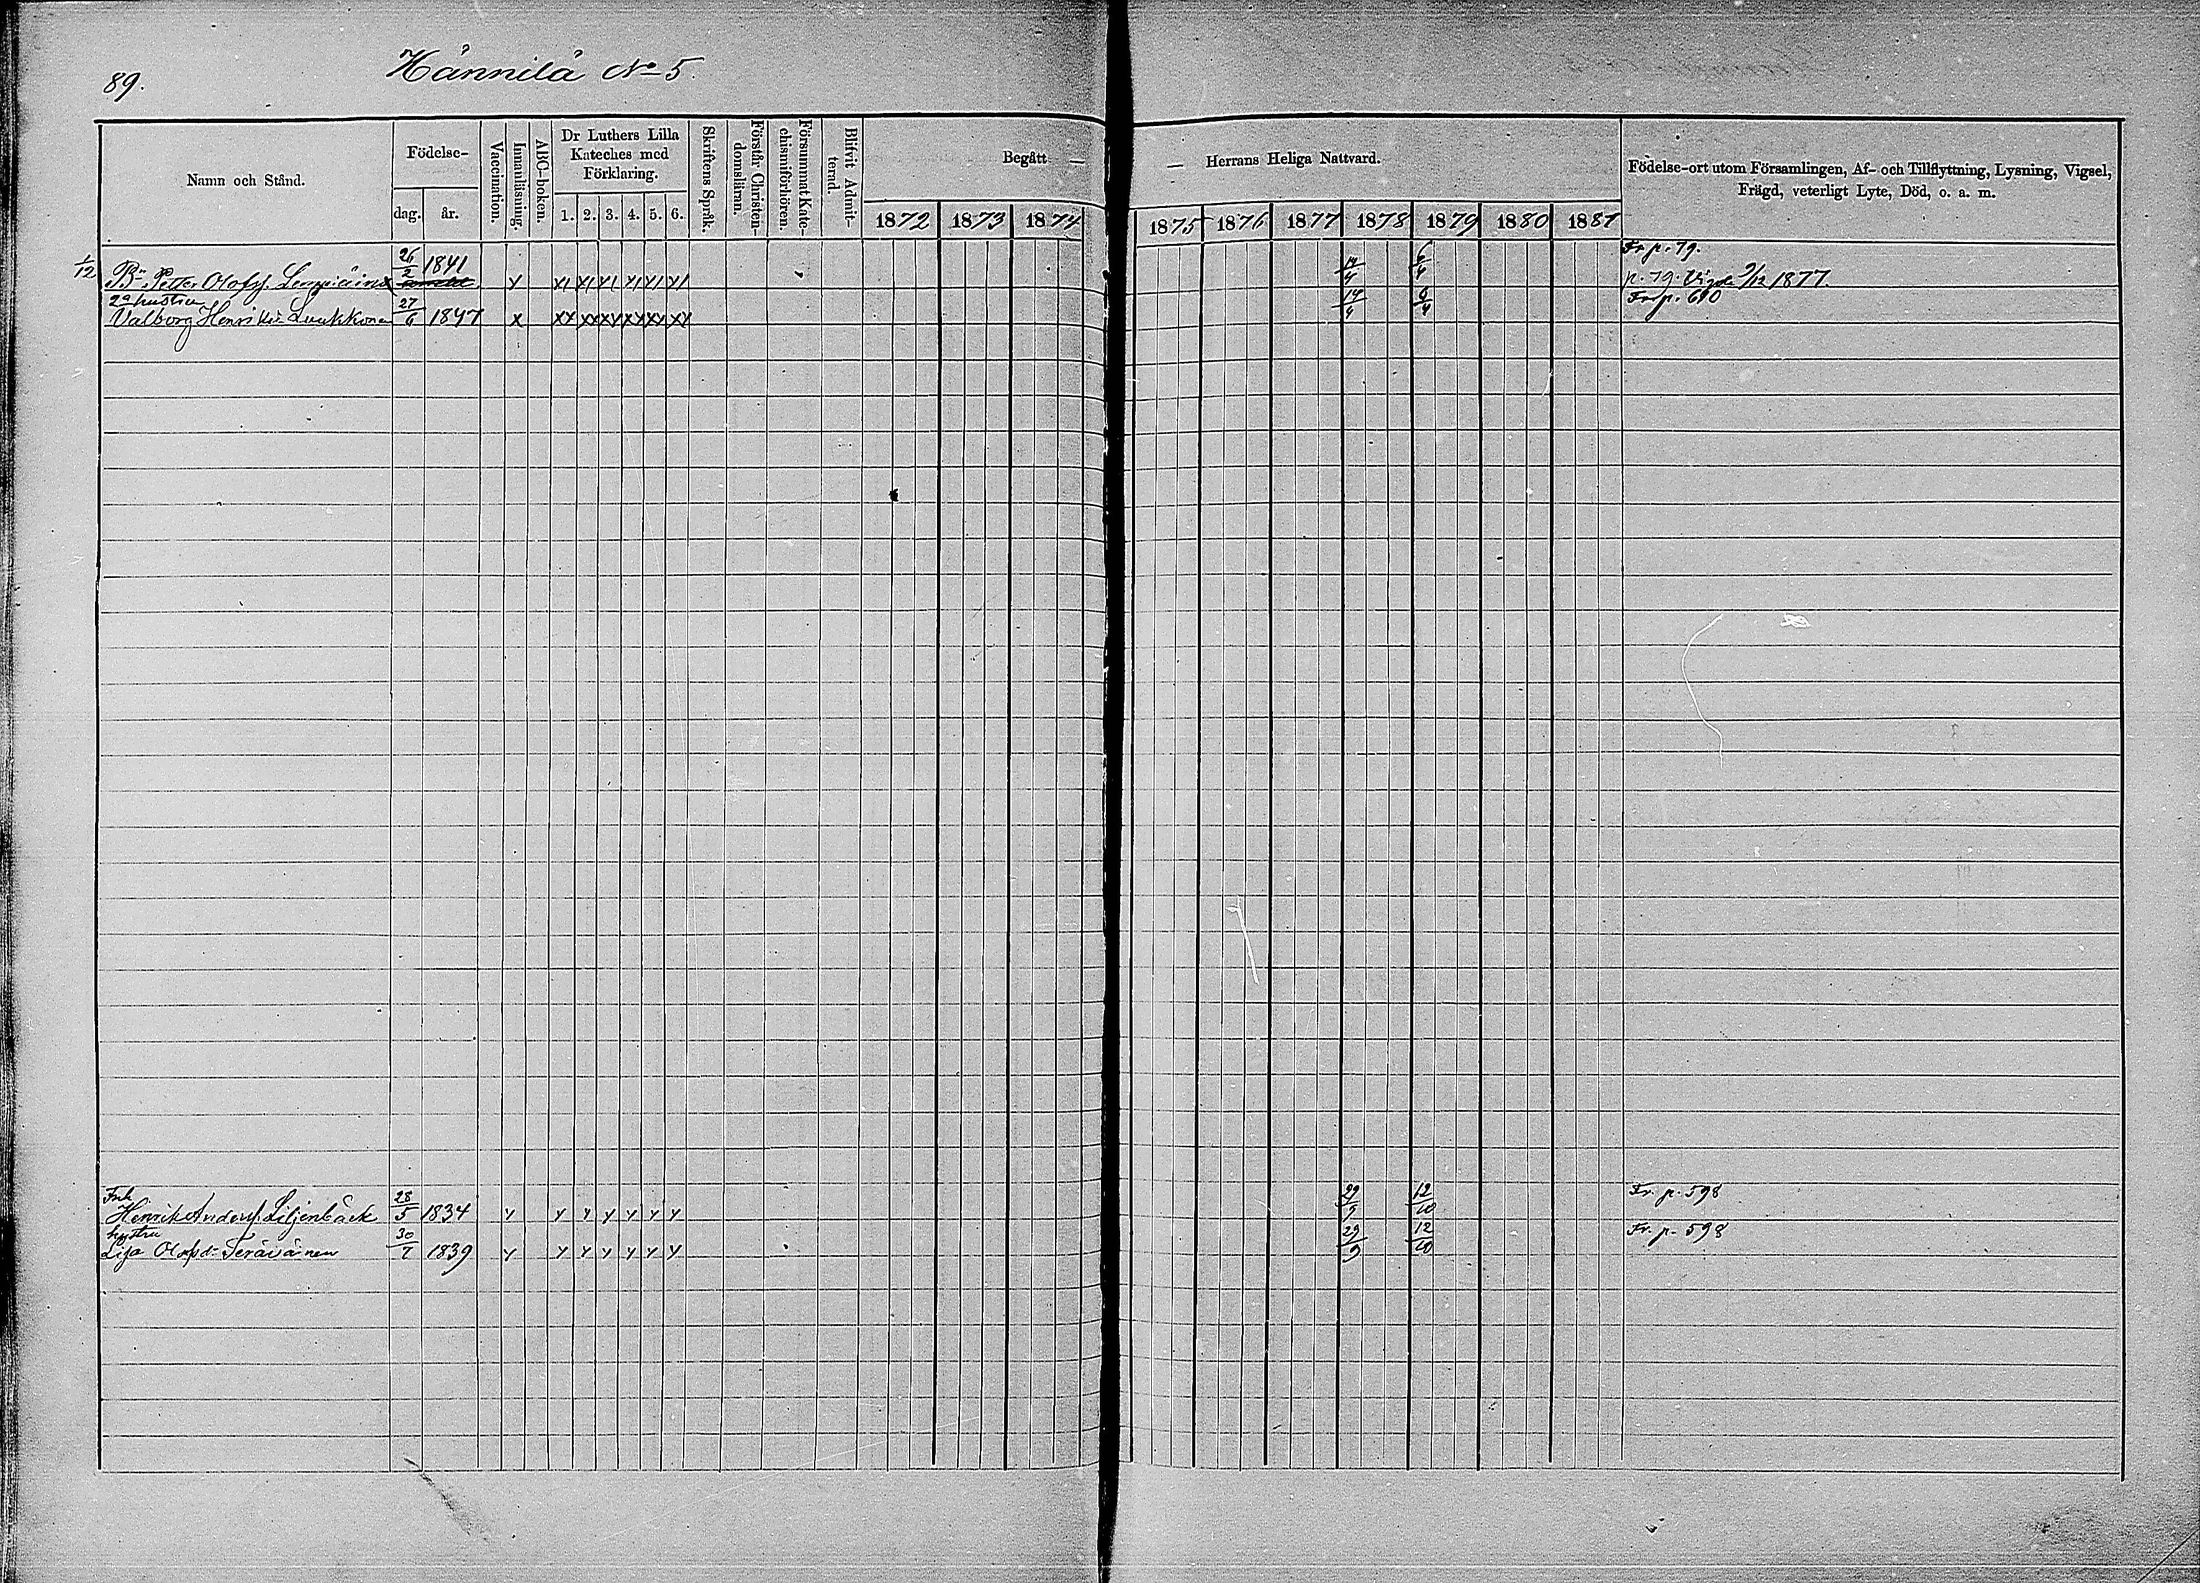 89.
Hännilä No 5.
Namn och Stånd.
Födelse-
dag.
år.
Vaccination.
Innanläsning.
ABC-boken.
Dr Luthers Lilla
Kateches med
Förklaring.
1. 2. 3. 4. 5. 6.
Skriftens Språk.
Förstår Christen-
domslärnn.
Försummat Kate-
chismiförhören.
Blifvit Admit-
terad.
Begått —
— Herrans Heliga Nattvard.
1872 1873 1874 1875 1876 1877 1878 1879 1880 1881
Födelse-ort utom Församlingen, Af- och Tillflyttning, Lysning, Vigsel,
Frägd, veterligt Lyte, Död, o. a. m.
1/12 Bn Petter Olofss. 26/2 1841 14/4 6/4 Fr p. 79.
p. 79. Vigde 9/12 1877.
2a hustru
Valborg Henriksd. Luukkonen 27/6 1847 x xx xx xx xx xx xx 14/4 6/4 Fr p. 610
Inh
Henrik Anderss. Liljenbäck 28/5 1834 y y y y y y y 29/9 12/10 Fr. p. 598
hustru
Lisa Olofsd:r Teräväinen 30/7 1839 y y y y y y y 29/9 12/10 Fr. p. 598